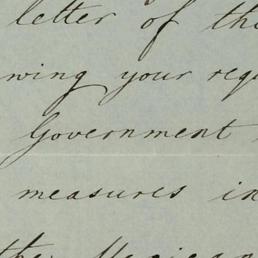 letter of the
wing your requ
Government
measures in
the Mexican